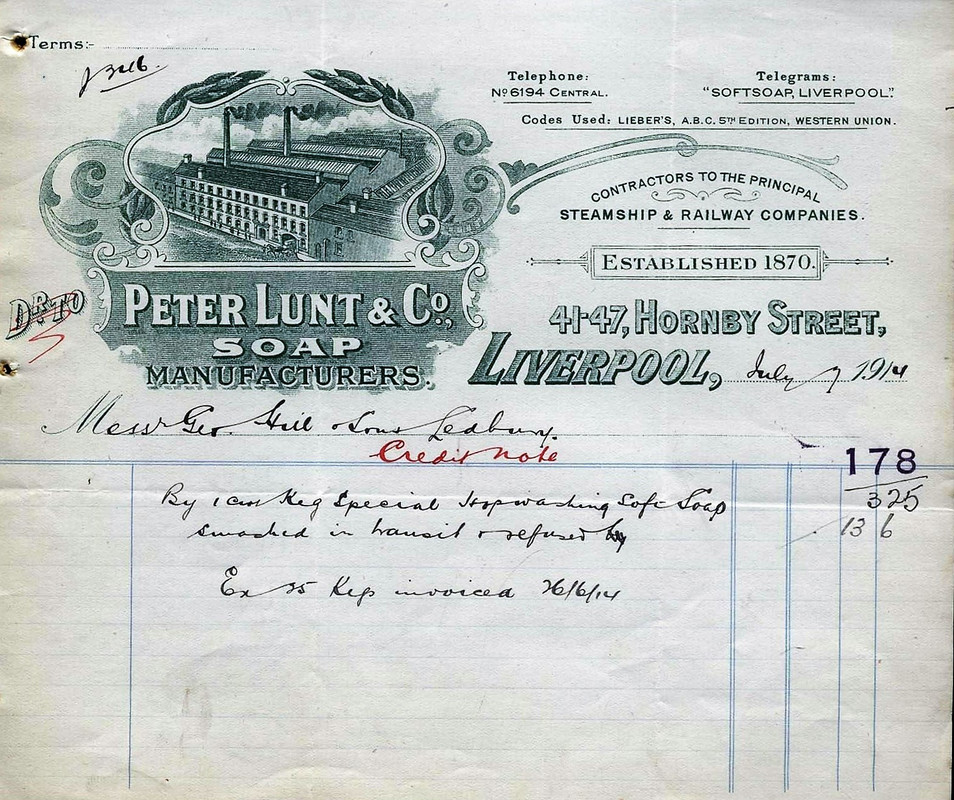 Terms:-
Telephone:
No 6194 CENTRAL.
Telegrams:
"SOFTSOAP, LIVERPOOL".
Codes Used: LIEBER'S, A.B.C. 5TH EDITION, WESTERN UNION.
CONTRACTORS TO THE PRINCIPAL
STEAMSHIP & RAILWAY COMPANIES.
ESTABLISHED 1870.
DR TO
PETER LUNT & Co.,
SOAP
MANUFACTURERS.
41-47, HORNBY STREET,
LIVERPOOL, July 7 1914
Messrs Geo. Hill & Sons Ledbury.
Credit Note
178
325
By 1 cwt Keg Special Hopwashing Soft Soap
smashed in transit & refused
13 6
Ex 25 Kegs invoiced 26/6/14